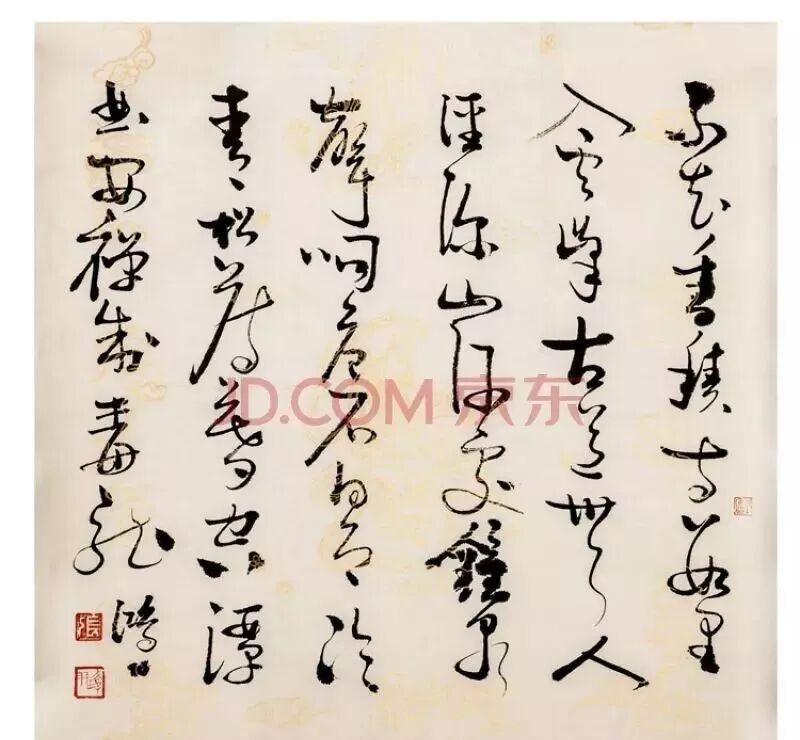 不知香積寺數里
入雲峰古無人
徑深山何處鐘泉
聲咽危石日色冷
青松薄暮空潭
曲安禪制毒龍
張
JD.COM 京东